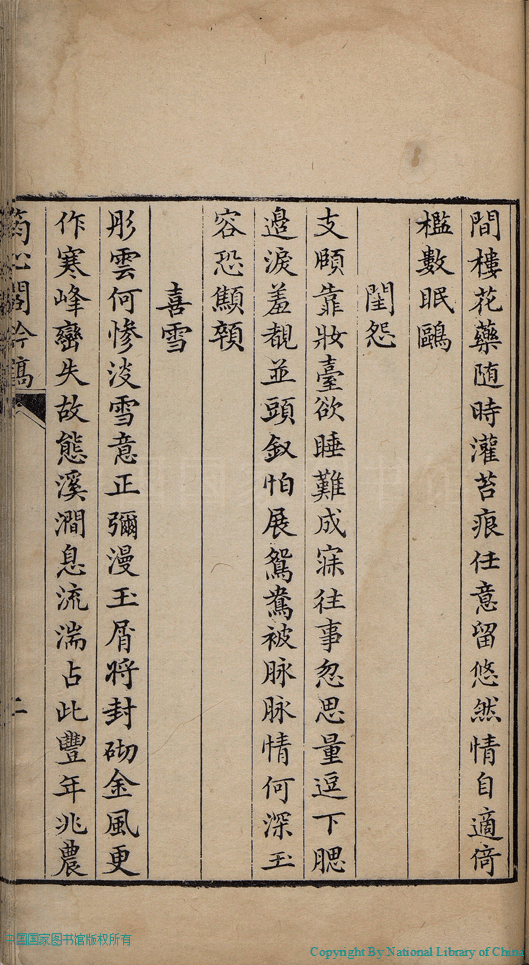 間樓花藥随時灌苔痕任意留悠然情自適倚
檻數眠鷗
閨怨
支頤靠妝臺欲睡難成寐往事忽思量逗下腮
邉淚羞覩並頭釵怕展鴛鴦被脉脉情何深玉
容恐顦顇
喜雪
彤雲何慘淡雪意正彌漫玉屑將封砌金風更
作寒峰巒失故態溪澗息流湍占此豐年兆農
二
中国国家图书馆版权所有
Copyright By National Library of China